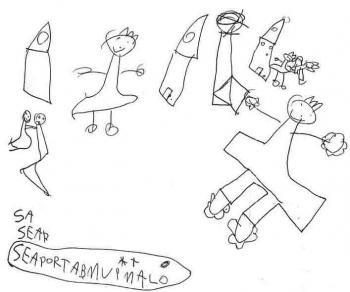 SA
SEAP
SEAPORTABMVIMALO